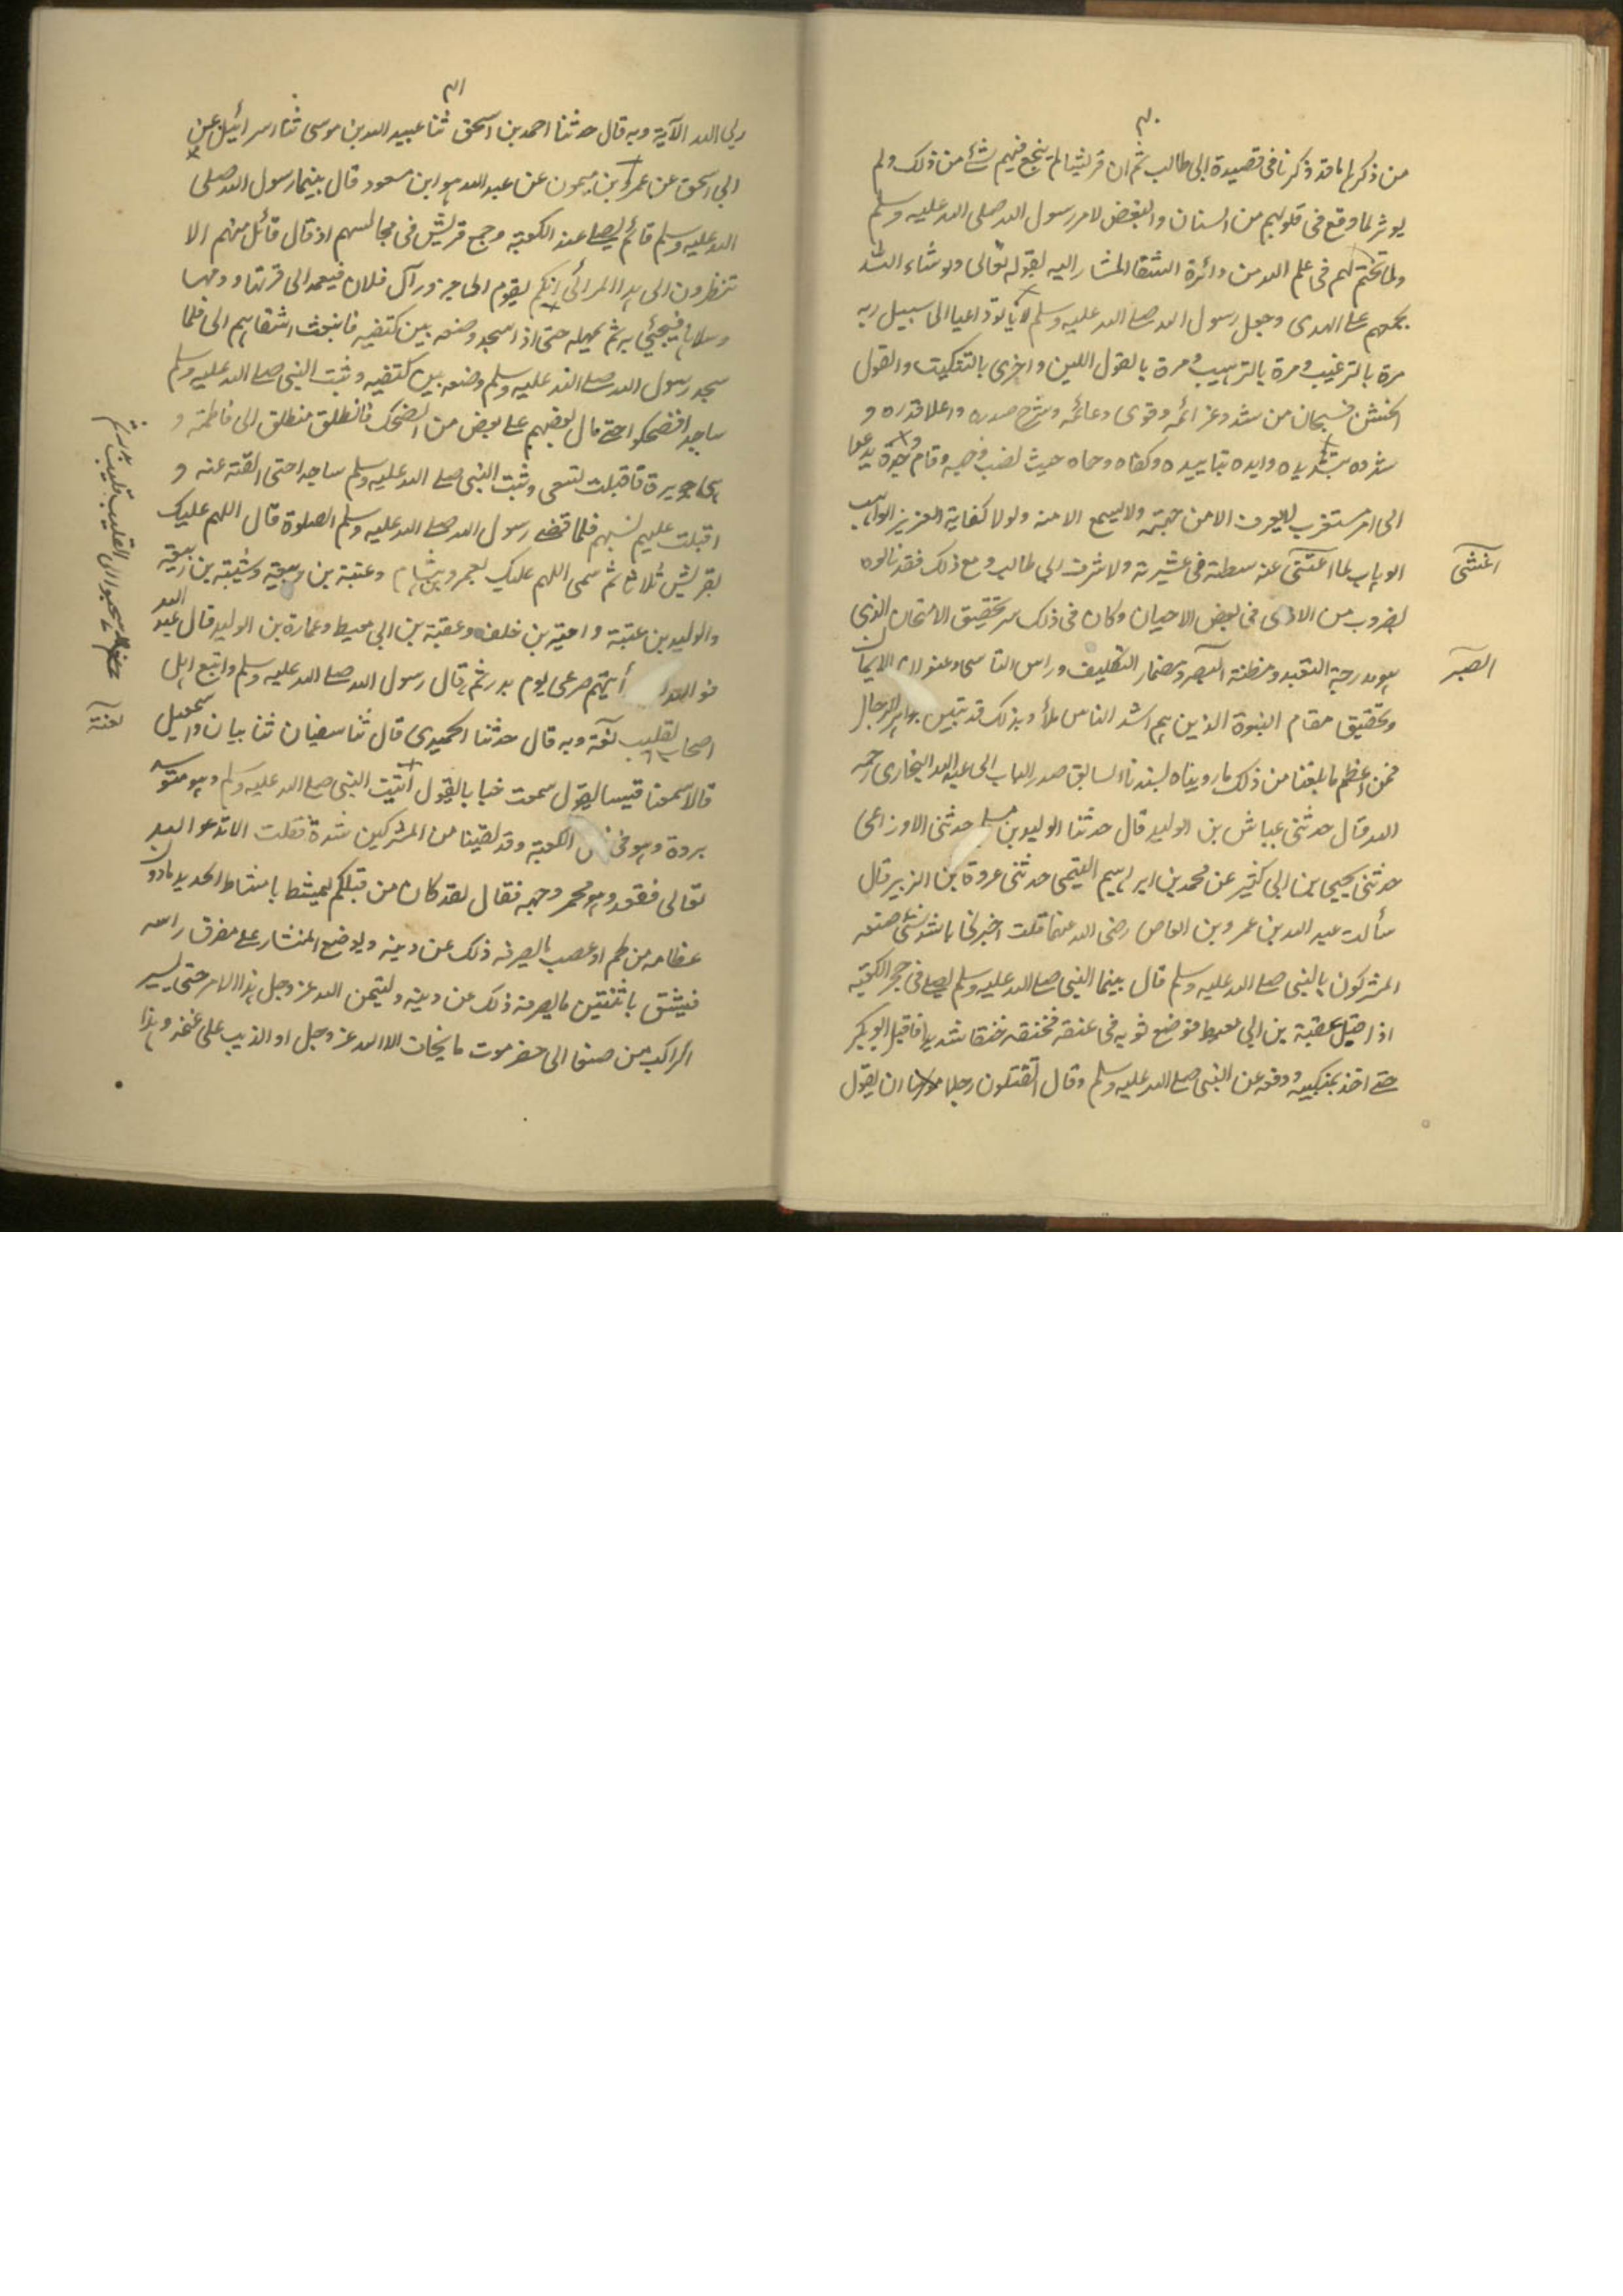 ٤٠
من ذكرها ما قد ذكرنا فى قصيدة ابى طالب ثم ان قريشا لم ينجع فيهم شئ من ذلك ولم
يوثر لما وقع فى قلوبهم من الشنان والبغض لامر رسول الله صلى الله عليه وسلم
ولما تحتم لهم فى علم الله من دائرة الشقا المشار اليه بقوله تعالى ولو شاء الله
لجمعهم على الهدى وجعل رسول الله صلى الله عليه وسلم لا يالو داعيا الى سبيل ربه
مرة بالترغيب ومرة بالترهيب ومرة بالقول اللين واخرى بالتنكيت والقول
الخشن فسبحان من شد وعزائمه وقوى دعائمه وشرح صدره واعلا قدره و
وايده بتاييده وكفاه وحماه حيث نصب وجهه وقام وحده يدعوا
الى امر مستغرب لا يعرف الا من جهته ولا يسمع الا منه ولولا كفاية العزيز الواهب
الوهاب لما اغتنى عنه سطته فى عشيرته ولا شرف ابى طالب ومع ذلك فقد نالوه
اغتنى
بضروب من الاذى فى بعض الاحيان وكان فى ذلك سر تحقيق الامتحان الذى
هو مدرجة التعبد ومظنة الصبر ومضمار التكليف وراس التاسى وعنوان الايمان
الصبر
وتحقيق مقام النبوة الذين هم اشد الناس بلأ وبذلك قد تبين جواهر الرجال
فمن اعظم ما بلغنا من ذلك ما رويناه بسندنا السابق صدر الباب الى عبد الله البخارى رحمه
الله قال حدثنى عياش بن الوليد قال حدثنا الوليد بن مسلم حدثنى الاوزاعى
حدثنى يحيى بن ابى كثير عن محمد بن ابراهيم التيمى حدثنى عروة بن الزبير قال
سألت عبد الله بن عمرو بن العاص رضى الله عنهما قلت اخبرنى باشد شئ صنعه
المشركون بالنبى صلى الله عليه وسلم قال بينما النبى صلى الله عليه وسلم يصلى فى حجر الكعبة
اذ اقبل عقبة بن ابى معيط فوضع ثوبه فى عنقه فخنقه خنقا شديدا فاقبل ابوبكر
حتى اخذ بمنكبيه ودفعه عن النبى صلى الله عليه وسلم وقال اتقتلون رجلا ان يقول
٤١
ربى الله الآية وبه قال حدثنا احمد بن اسحق ثنا عبيد الله بن موسى ثنا اسرائيل عن
ابى اسحق عن عمرو بن ميمون عن عبد الله هو ابن مسعود قال بينما رسول الله صلى
الله عليه وسلم قائم يصلى عند الكعبة وجمع قريش فى مجالسهم اذ قال قائل منهم الا
تنظرون الى هذا المرائى ايكم يقوم الى جزور آل فلان فيعمد الى فرثها ودمها
وسلاها فيجئ به ثم يمهله حتى اذا سجد وضعه بين كتفيه فانبعث اشقاهم الى فلما
سجد رسول الله صلى الله عليه وسلم وضعه بين كتفيه وثبت النبى صلى الله عليه وسلم
ساجدا فضحكوا حتى مال بعضهم على بعض من الضحك فانطلق منطلق الى فاطمة و
هى جويرة فاقبلت تسعى وثبت النبى صلى الله عليه وسلم ساجدا حتى القته عنه و
اقبلت عليهم تسبهم فلما قضى رسول الله صلى الله عليه وسلم الصلوة قال اللهم عليك
بقريش ثلاثا ثم سمى اللهم عليك بعمرو بن هشام وعتبة بن ربيعة وشيبة بن ربيعة
والوليد بن عتبة وامية بن خلف وعقبة بن ابى معيط وعمارة بن الوليد قال عبد الله
فوالله رأيتهم صرعى يوم بدر ثم قال رسول الله صلى الله عليه وسلم واتبع اهل
سحبوا الى القليب قليب بدر ثم
اصحاب القليب لعنة وبه قال حدثنا الحميدى قال ثنا سفيان ثنا بيان واسمعيل
لعنة
قالا سمعنا قيسا يقول سمعت خبابا يقول اتيت النبى صلى الله عليه وسلم وهو متوسد
بردة وهو فى ظل الكعبة وقد لقينا من المشركين شدة فقلت الا تدعو الله
تعالى فقعد وهو محمر وجهه فقال لقد كان من قبلكم ليمشط بامشاط الحديد ما دون
عظامه من لحم او عصب ما يصرفه ذلك عن دينه ويوضع المنشار على مفرق راسه
فيشق باثنتين ما يصرفه ذلك عن دينه وليتمن الله عز وجل هذا الامر حتى يسير
الراكب من صنعا الى حضرموت ما يخاف الا الله عز وجل او الذيب على غنمه وهذا